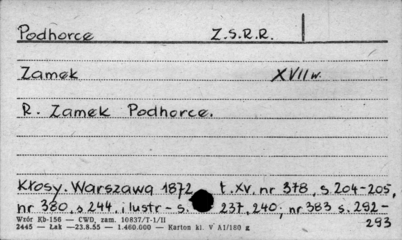 Podhorce Z.S.R.R.
Zamek XVII w.
R. Zamek Podhorce.
Kłosy. Warszawa 1872, t. XV. nr 378, s. 204-205,
nr 380, s. 244, ilustr - s. 237, 240; nr 383 s. 292-
293
Wzór Kb-156 — CWD, zam. 10837/T-1/II
2445 — Łak — 23.8.55 — 1.460.000 — Karton kl. V A1/180 g